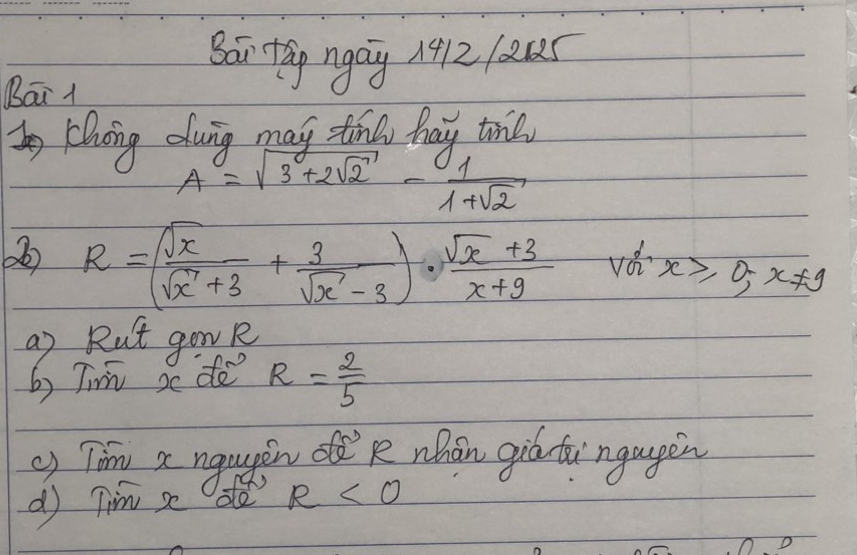 Bài tập ngày 14/2/2025
Bài 1
1) Không dùng máy tính hãy tính
A = √(3 + 2√2) - 1/(1+√2)
2) R = (√x/(√x + 3) + 3/(√x - 3)) . (√x + 3)/(x + 9) với x ≥ 0; x ≠ 9
a) Rút gọn R
b) Tìm x để R = 2/5
c) Tìm x nguyên để R nhận giá trị nguyên
d) Tìm x để R < 0